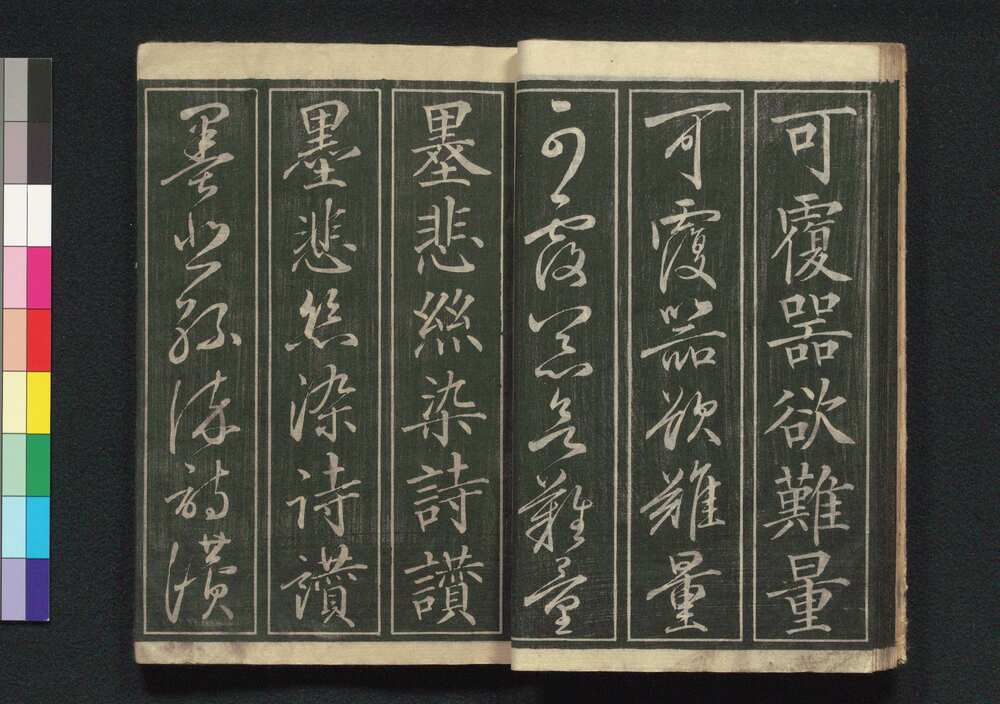 可覆器欲難量
可覆器欲難量
可覆器欲難量
墨悲絲染詩讃
墨悲絲染詩讃
墨悲絲染詩讃